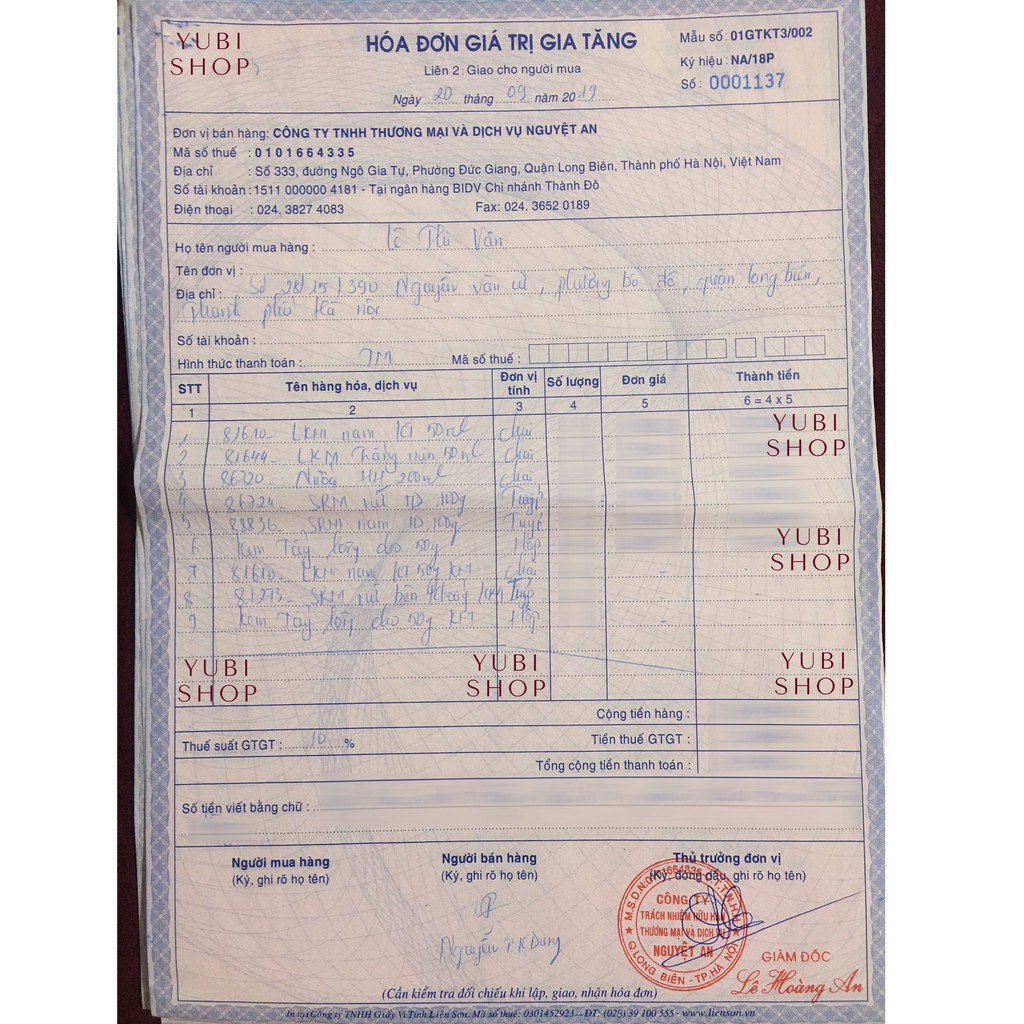 YUBI SHOP
HÓA ĐƠN GIÁ TRỊ GIA TĂNG
Liên 2: Giao cho người mua
Ngày 20 tháng 09 năm 2019
Mẫu số: 01GTKT3/002
Ký hiệu: NA/18P
Số: 0001137
Đơn vị bán hàng: CÔNG TY TNHH THƯƠNG MẠI VÀ DỊCH VỤ NGUYỆT AN
Mã số thuế : 0101664335
Địa chỉ : Số 333, đường Ngô Gia Tự, Phường Đức Giang, Quận Long Biên, Thành phố Hà Nội, Việt Nam
Số tài khoản : 1511 000000 4181 - Tại ngân hàng BIDV Chi nhánh Thành Đô
Điện thoại : 024. 3827 4083 Fax: 024. 3652 0189
Họ tên người mua hàng : Lê Thị Vân
Tên đơn vị :
Địa chỉ : Số 28/15/390 Nguyễn Văn Cừ, phường bồ đề, quận long biên,
Thành phố Hà Nội
Số tài khoản :
Hình thức thanh toán : TM Mã số thuế :
STT Tên hàng hóa, dịch vụ Đơn vị tính Số lượng Đơn giá Thành tiền
1 2 3 4 5 6 = 4 x 5
1 81610- LKM nam 50ml Chai
2 81644- LKM 50ml Chai
3 86720- Nước HH 200ml Chai
4 86724- SRM nữ 100g Tuýp
5 88836- SRM nam 100g Tuýp
6 Kem Tẩy lông 50g Hộp
7 81610- LKM nam 50g KM Chai
8 81273- SRM nữ Tuýp
9 Kem Tẩy lông 50g KM Hộp
YUBI SHOP
YUBI SHOP
YUBI SHOP
YUBI SHOP
YUBI SHOP
Cộng tiền hàng :
Thuế suất GTGT : 10 % Tiền thuế GTGT :
Tổng cộng tiền thanh toán :
Số tiền viết bằng chữ :
Người mua hàng Người bán hàng Thủ trưởng đơn vị
(Ký, ghi rõ họ tên) (Ký, ghi rõ họ tên) (Ký, đóng dấu, ghi rõ họ tên)
M.S.D.N:0101664335 C.T.T.N.H.H
CÔNG TY
TRÁCH NHIỆM HỮU HẠN
THƯƠNG MẠI VÀ DỊCH VỤ
NGUYỆT AN
Q.LONG BIÊN - TP.HÀ NỘI
Nguyễn T. K Dung
GIÁM ĐỐC
Lê Hoàng An
(Cần kiểm tra đối chiếu khi lập, giao, nhận hóa đơn)
In tại Công ty TNHH Giấy Vi Tính Liên Sơn. Mã số thuế: 0301452923 - ĐT: (028) 39 100 555 - www.lienson.vn